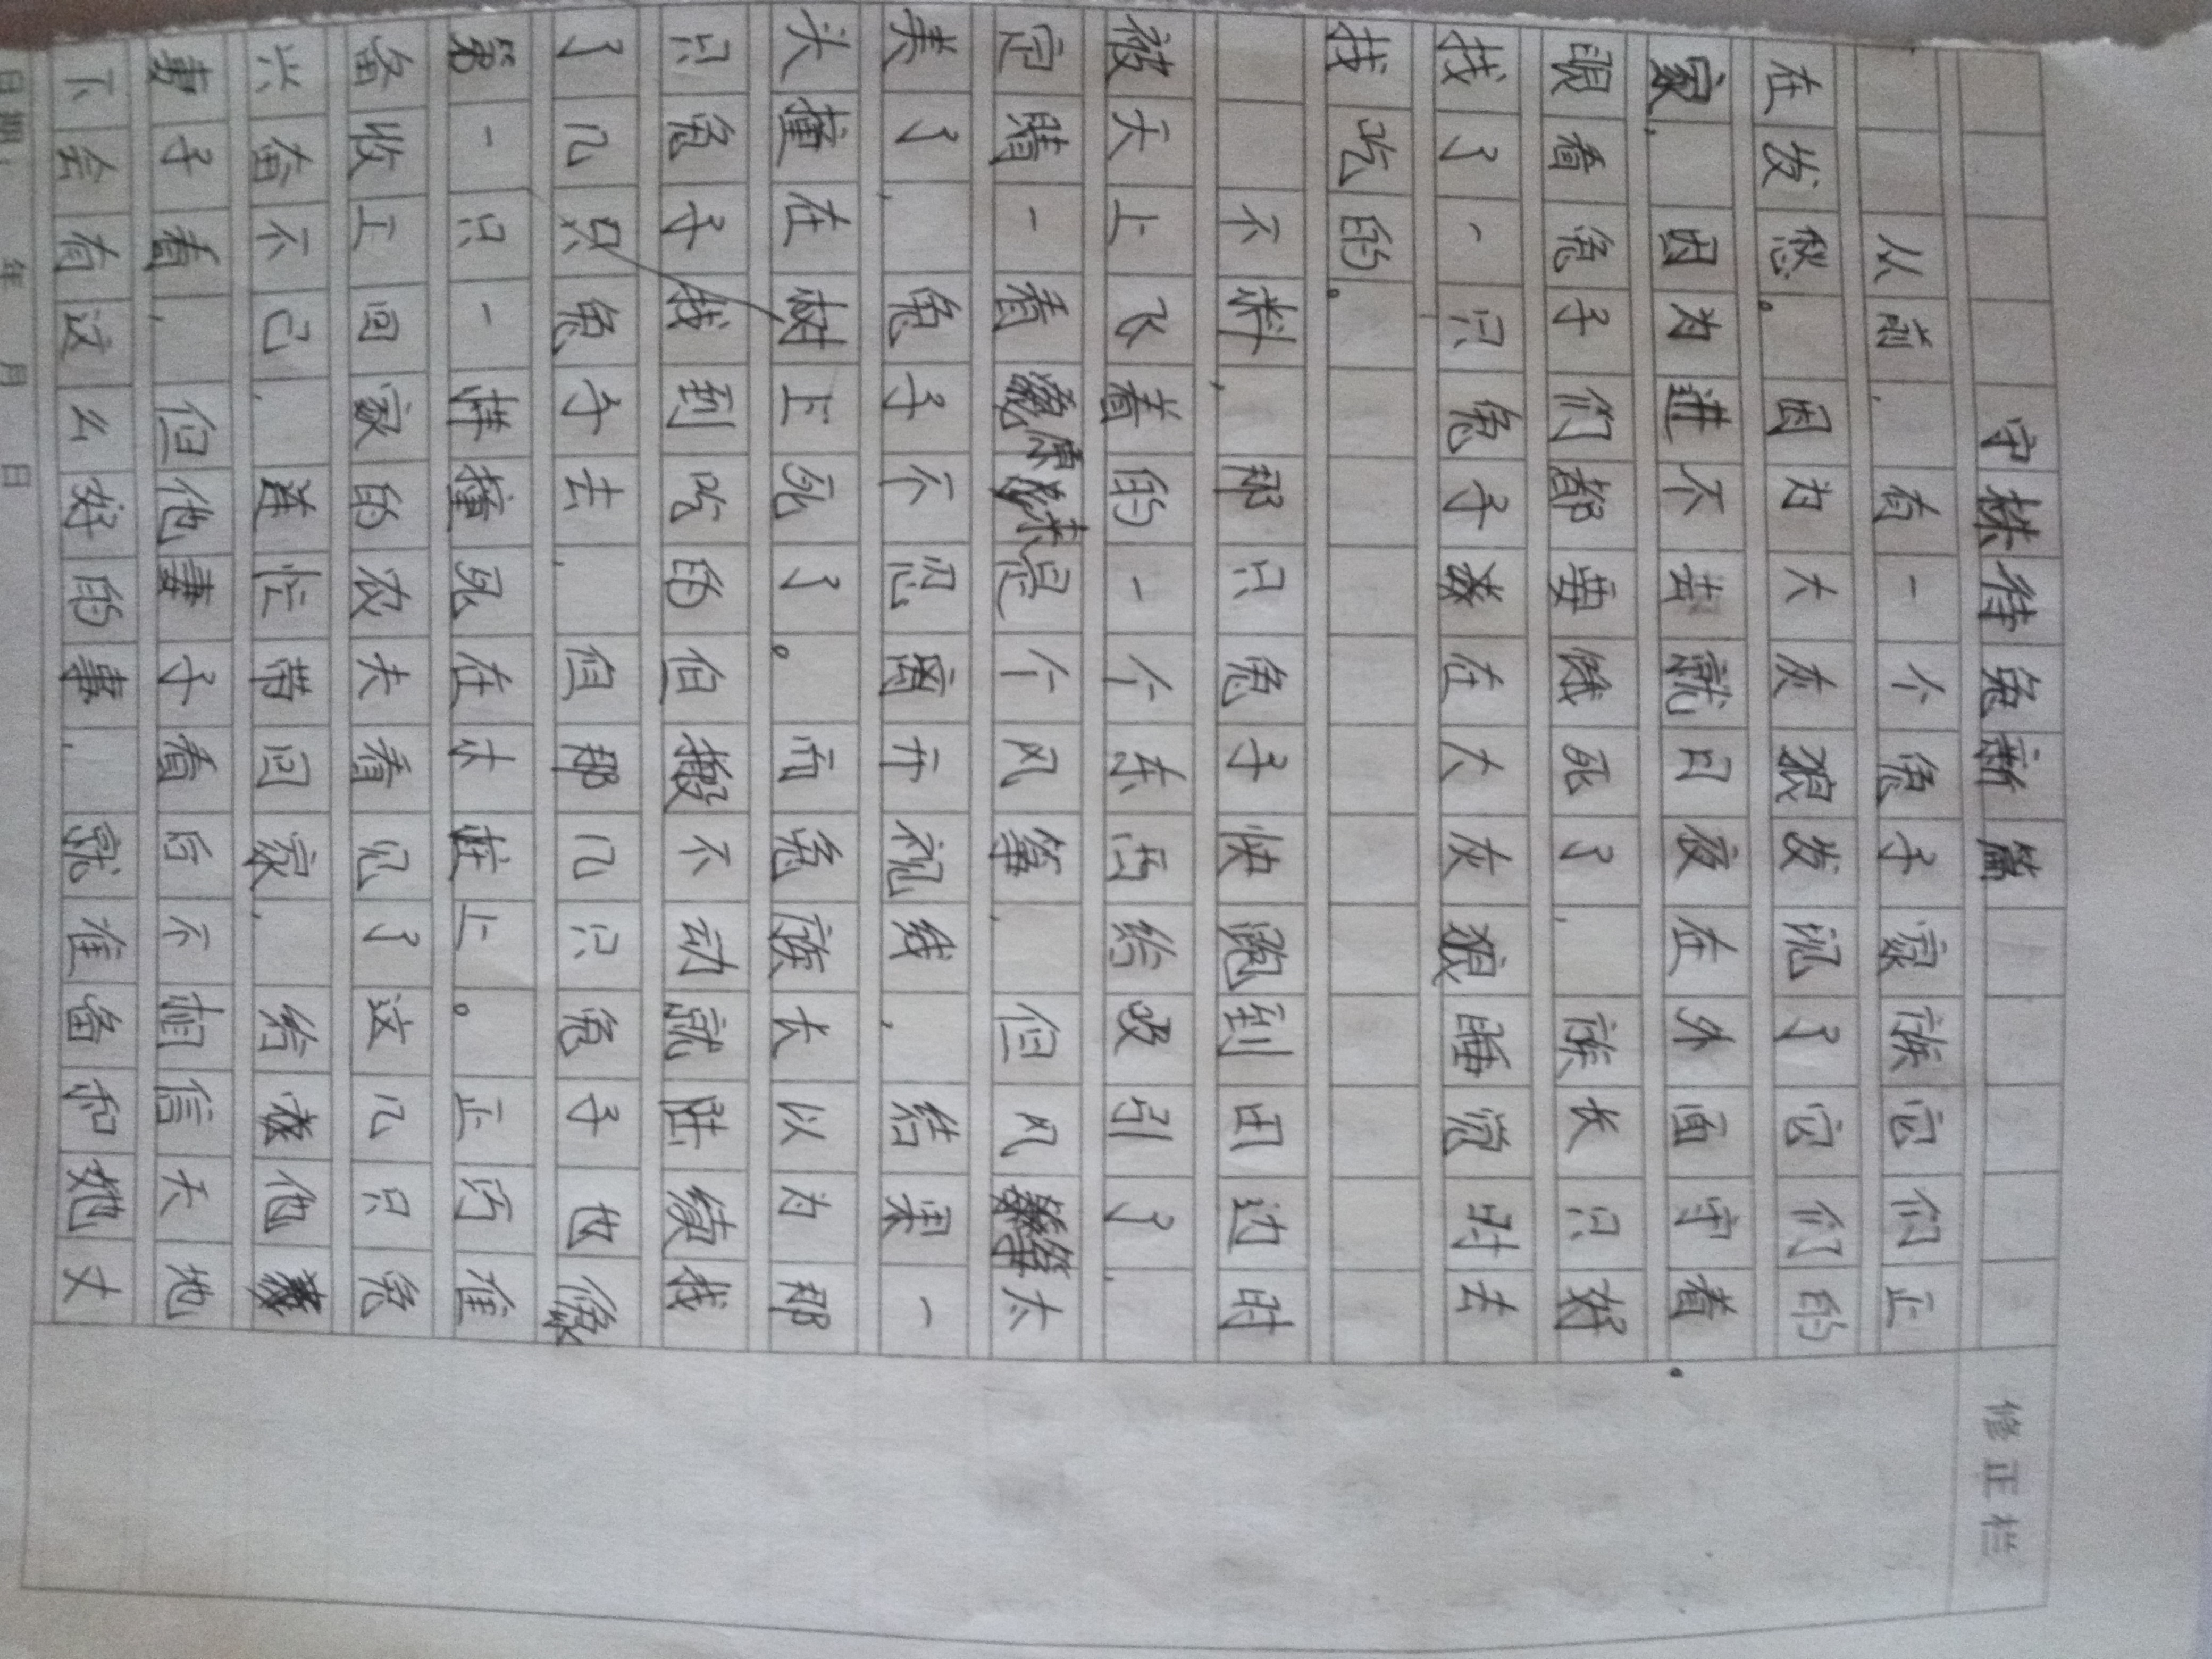 守株待兔新篇
从前，有一个兔子家族它们正
在发愁。因为大灰狼发现了它们的
家，因为进不去就日夜在外面守着
眼看兔子们都要饿死了，族长只好
找了一只兔子在大灰狼睡觉时去
找吃的。
不料，那只兔子快跑到田边时
被天上飞着的一个东西给吸引了，
定睛一看原来是个风筝，但风筝太
美了，兔子不忍离开视线，结果一
头撞在树上死了。而兔族长以为那
只兔子找到吃的但搬不动就陆续找
了几只兔子去，但那几只兔子也像
第一只一样撞死在木桩上。正巧准
备收工回家的农夫看见了这几只兔
兴奋不已，连忙带回家，给他
妻子看，但他妻子看后不相信天地
下会有这么好的事，就准备和她丈
修正栏
日期： 年 月 日